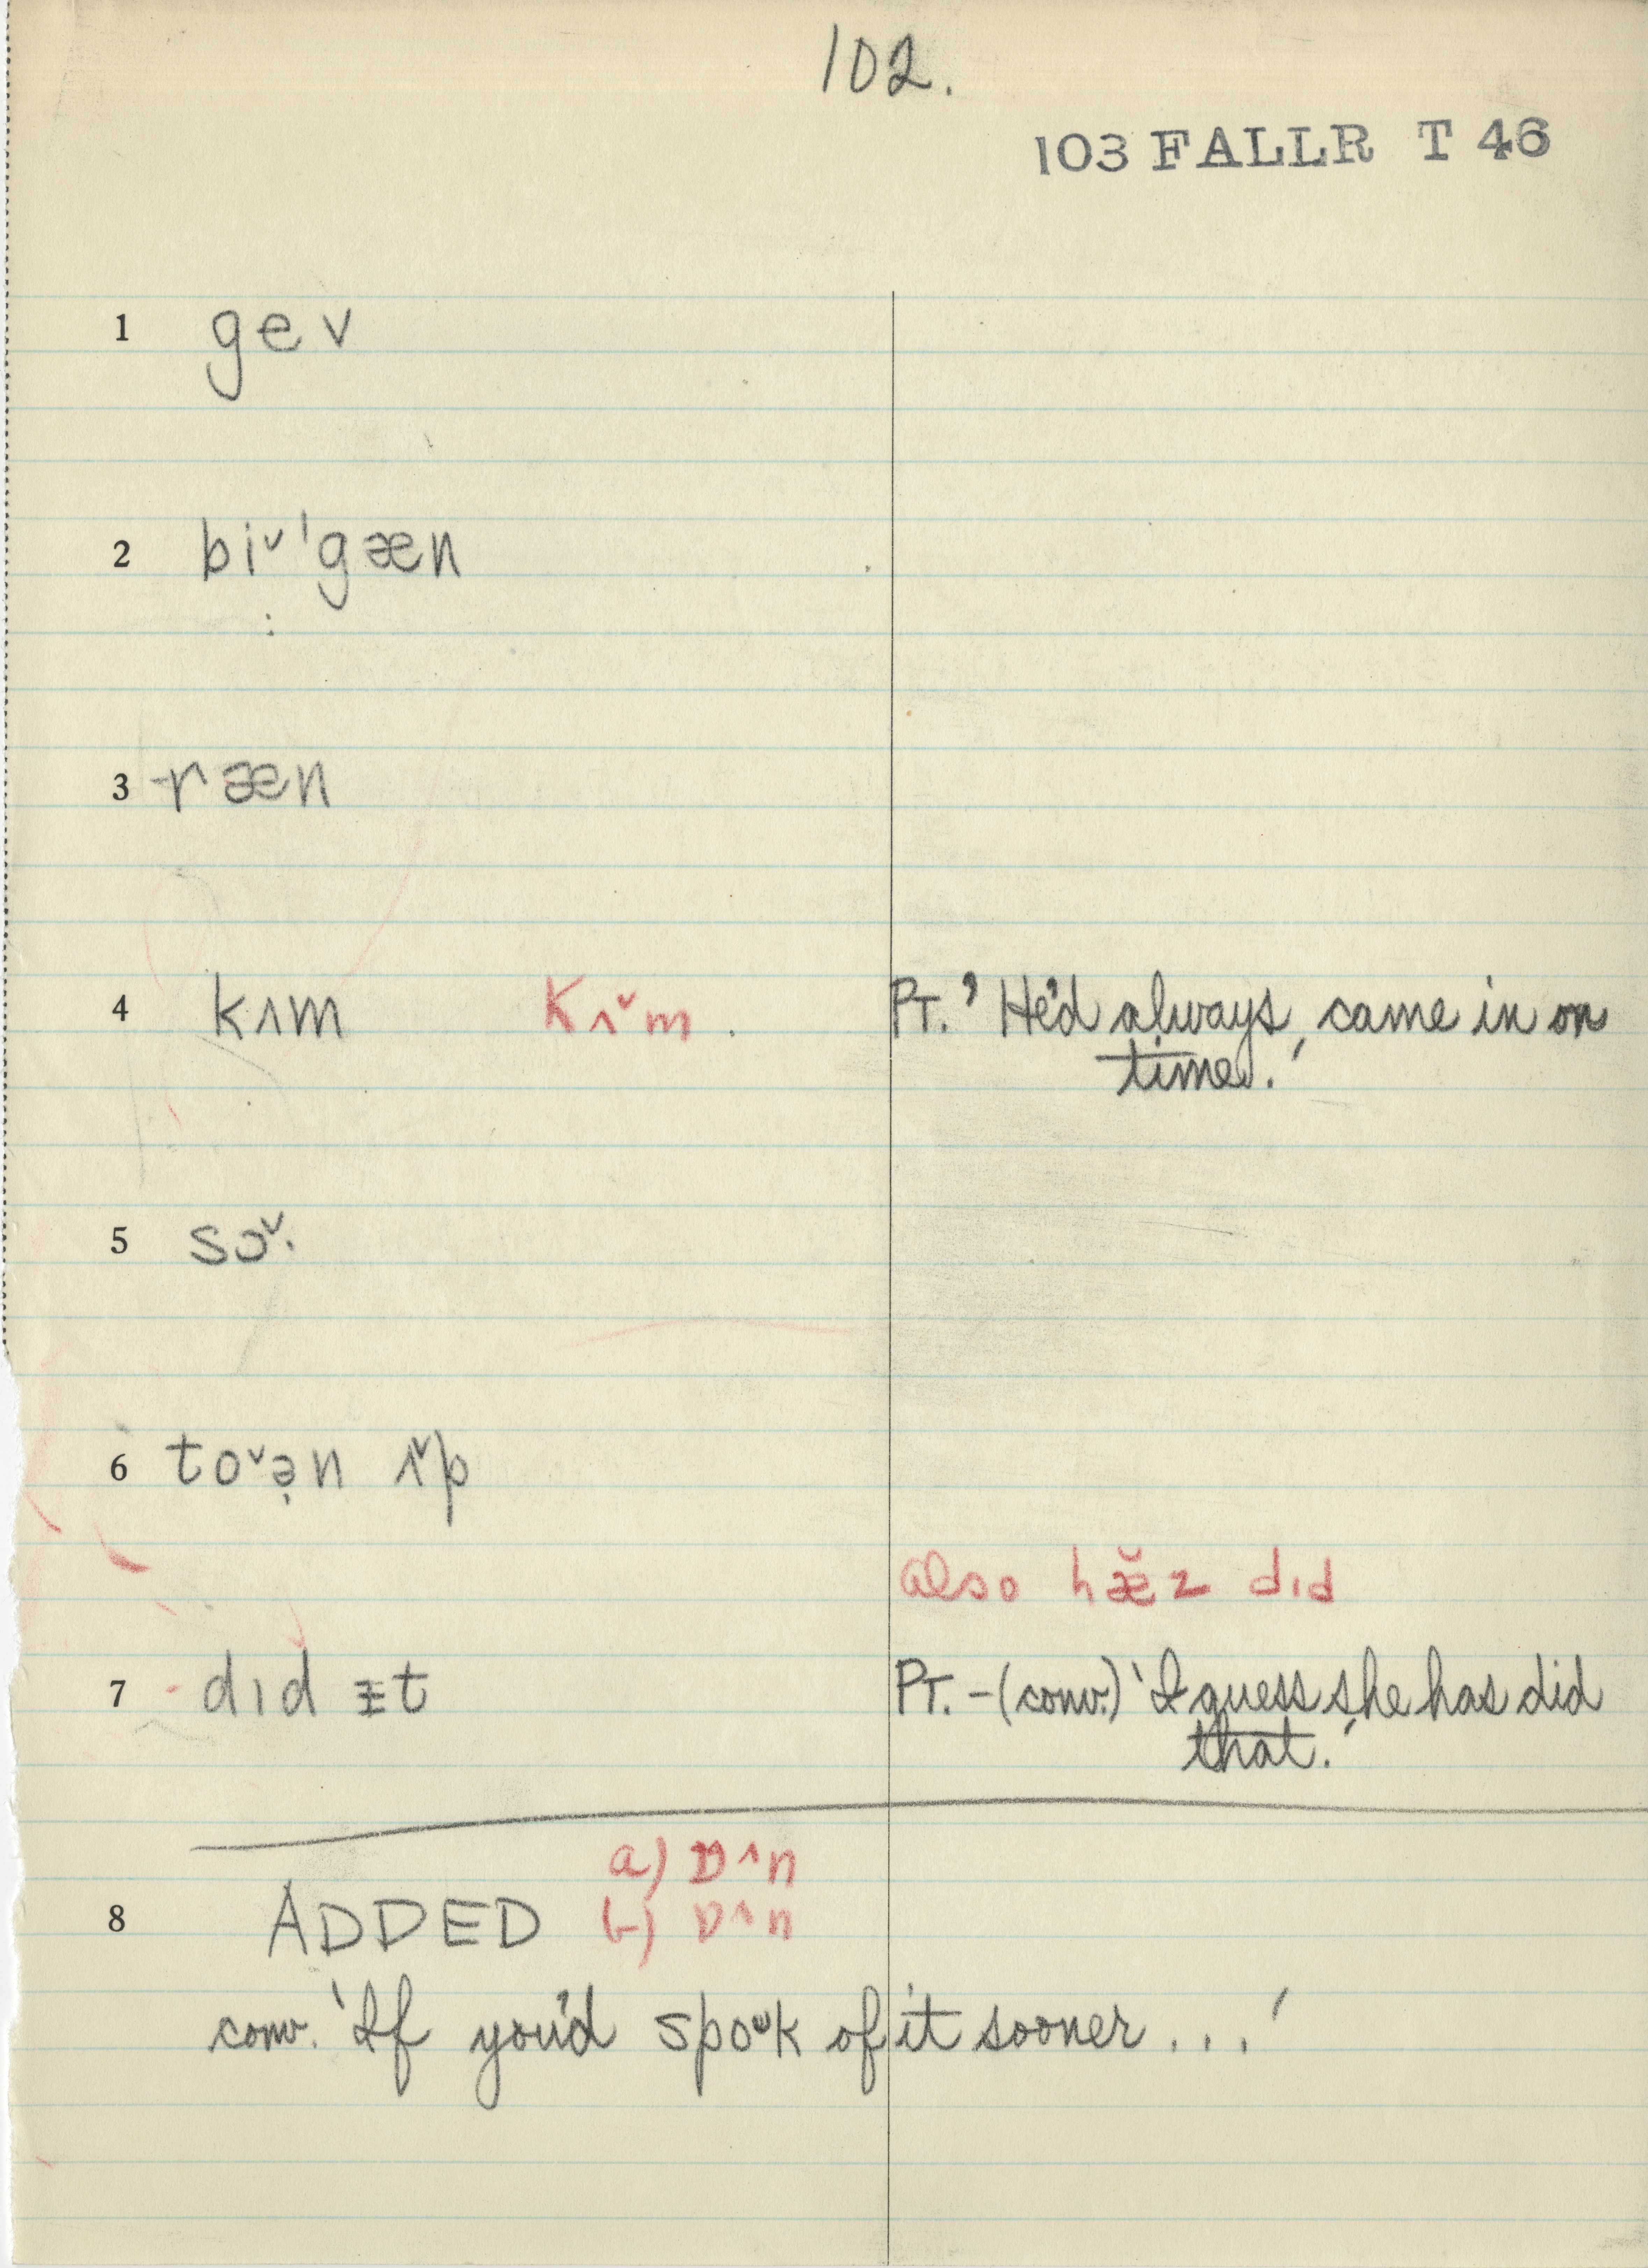 102.
103 FALLR T 46
1 gev
2 biˇ'gæn
3 ræn
4 kʌm Kʌˇm . PT.' He'd always came in on
time.'
5 sɔˇ·
6 toˇə̣n ʌˇp
also hæˇz dıd
7 dıd ɪt PT. - (conv.) 'I guess she has did
that.'
a) D^n
8 ADDED b) D^n
conv. 'If you'd spoᴗk of it sooner . . .'